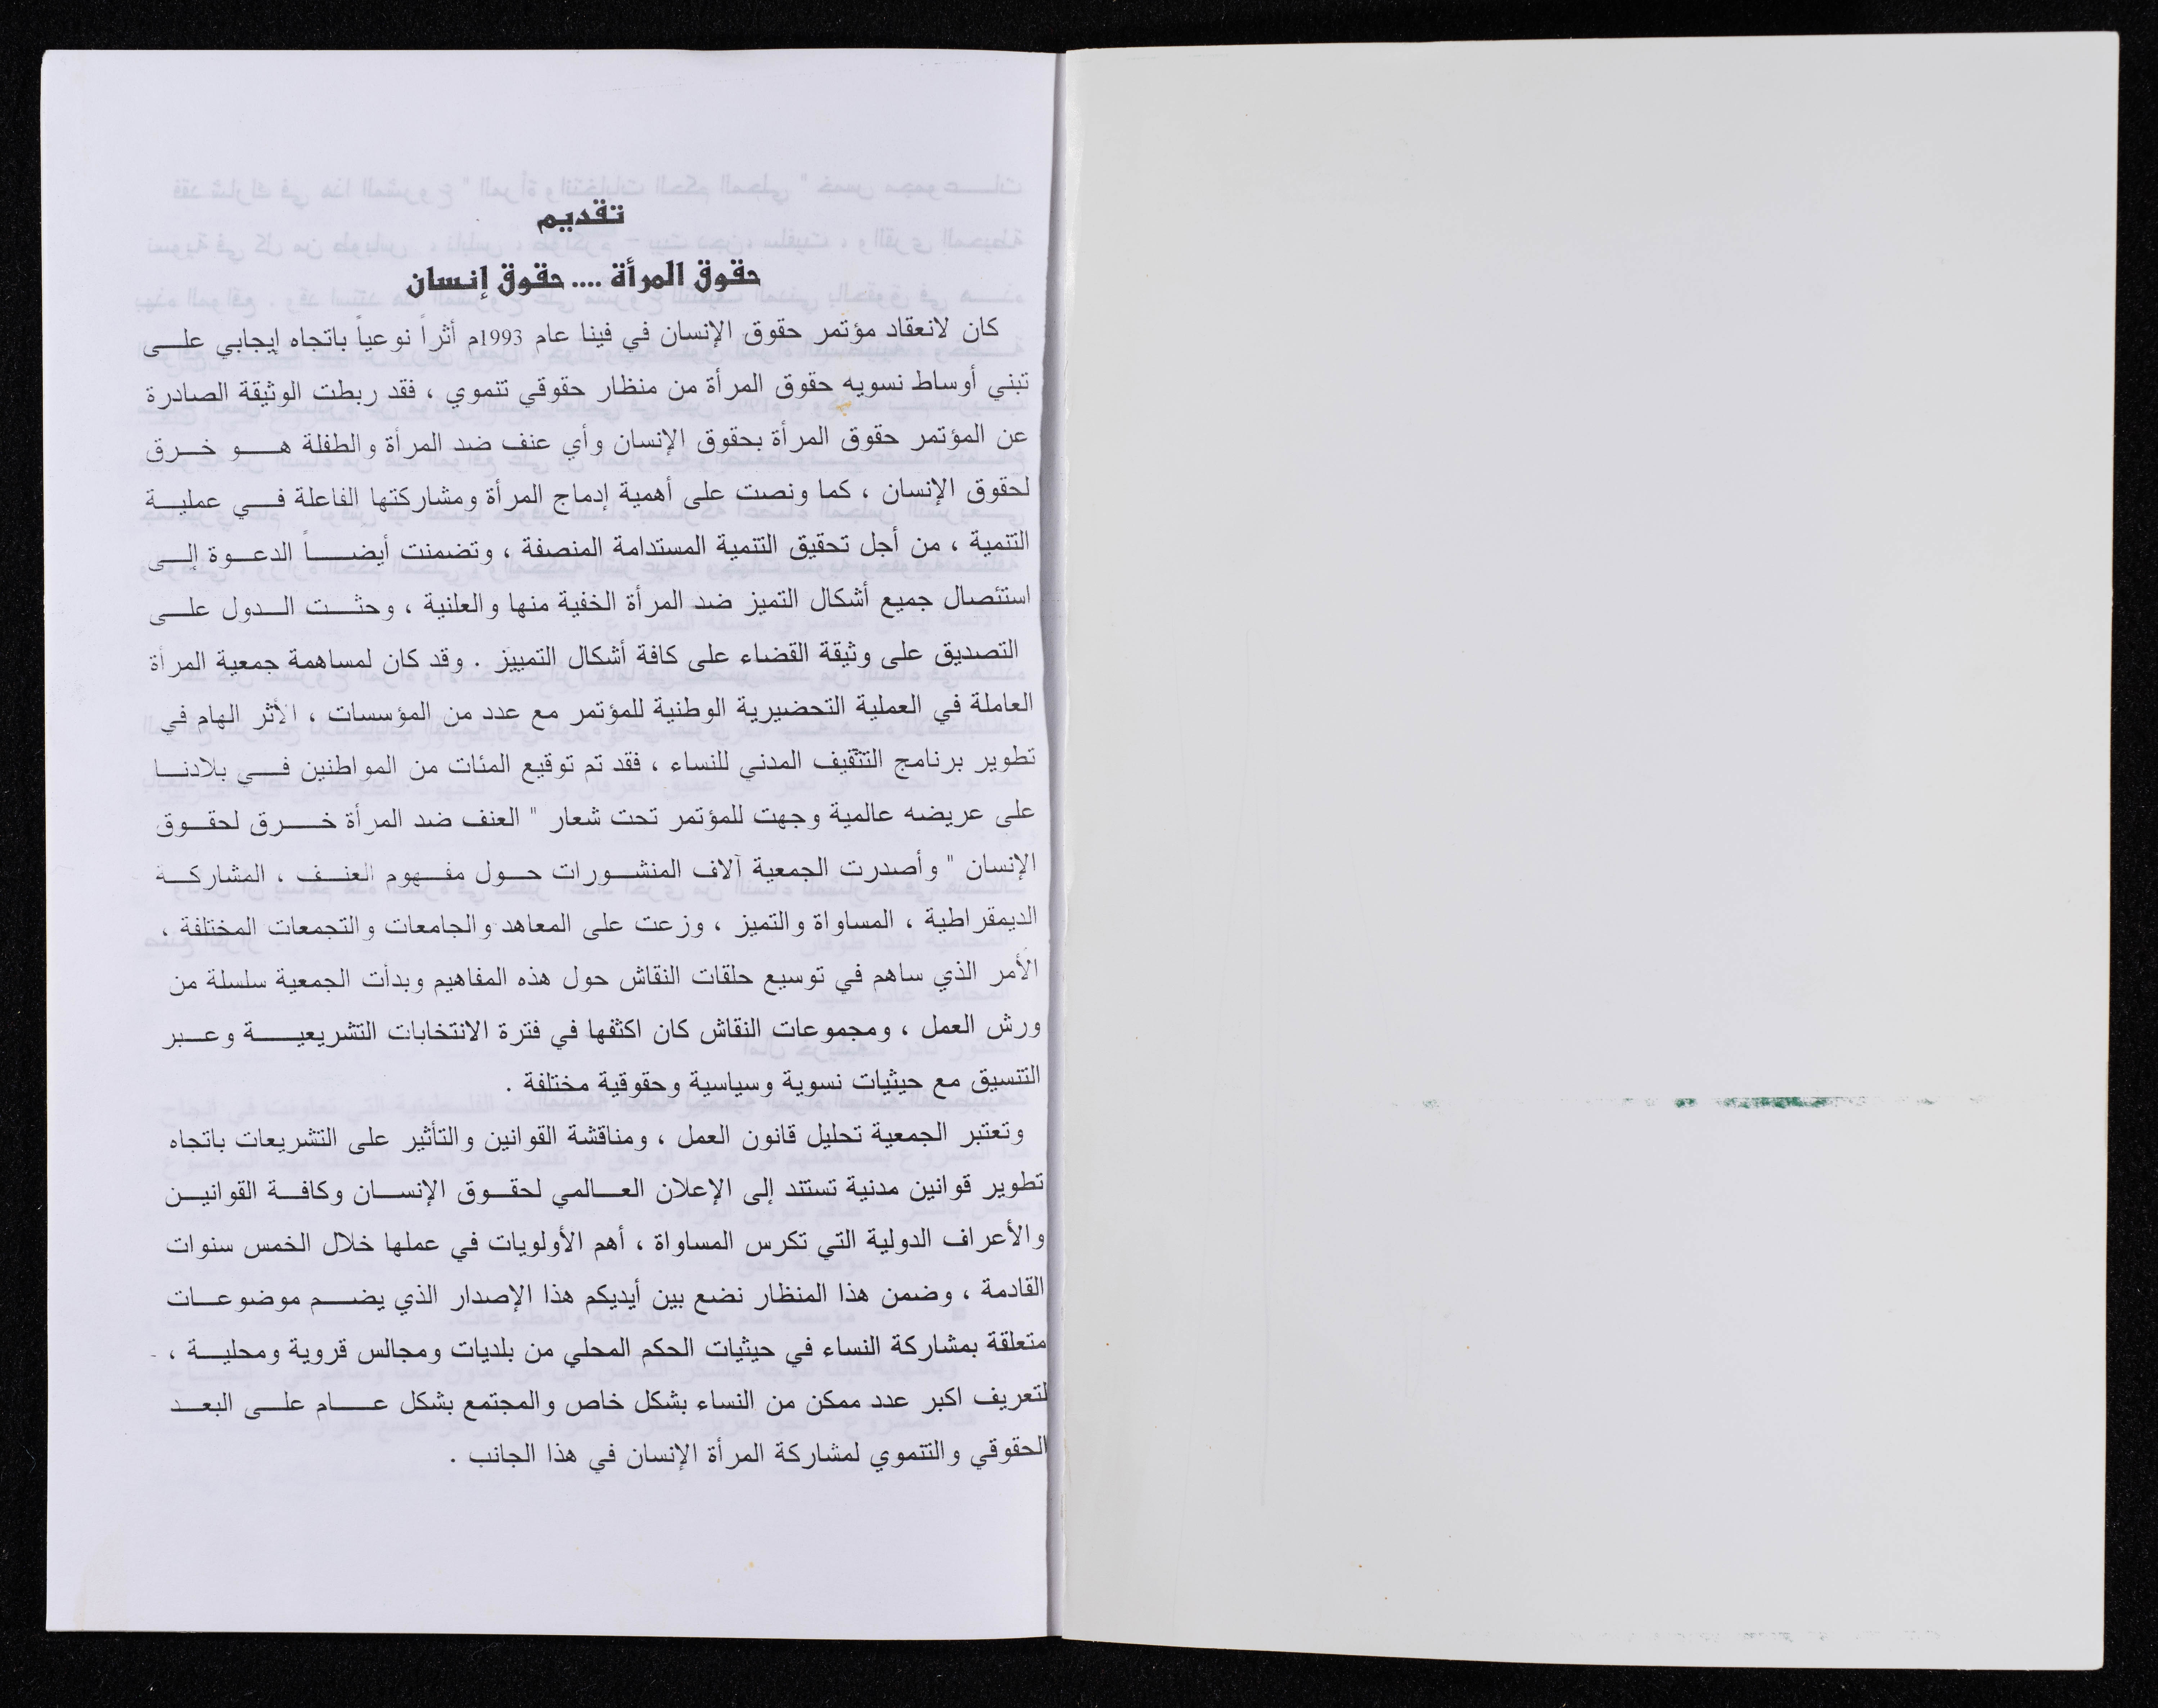 تقديم
حقوق المرأة .... حقوق إنسان
كان لانعقاد مؤتمر حقوق الإنسان في فينا عام 1993م أثراً نوعياً باتجاه إيجابي على
تبني أوساط نسويه حقوق المرأة من منظار حقوقي تنموي ، فقد ربطت الوثيقة الصادرة
عن المؤتمر حقوق المرأة بحقوق الإنسان وأي عنف ضد المرأة والطفلة هو خرق
لحقوق الإنسان ، كما ونصت على أهمية إدماج المرأة ومشاركتها الفاعلة في عملية
التنمية ، من أجل تحقيق التنمية المستدامة المنصفة ، وتضمنت أيضاً الدعوة إلى
استئصال جميع أشكال التميز ضد المرأة الخفية منها والعلنية ، وحثت الدول على
التصديق على وثيقة القضاء على كافة أشكال التمييز . وقد كان لمساهمة جمعية المرأة
العاملة في العملية التحضيرية الوطنية للمؤتمر مع عدد من المؤسسات ، الأثر الهام في
تطوير برنامج التثقيف المدني للنساء ، فقد تم توقيع المئات من المواطنين في بلادنا
على عريضه عالمية وجهت للمؤتمر تحت شعار " العنف ضد المرأة خرق لحقوق
الإنسان " وأصدرت الجمعية آلاف المنشورات حول مفهوم العنف ، المشاركة
الديمقراطية ، المساواة والتميز ، وزعت على المعاهد والجامعات والتجمعات المختلفة ،
الأمر الذي ساهم في توسيع حلقات النقاش حول هذه المفاهيم وبدأت الجمعية سلسلة من
ورش العمل ، ومجموعات النقاش كان اكثفها في فترة الانتخابات التشريعية وعبر
التنسيق مع حيثيات نسوية وسياسية وحقوقية مختلفة .
وتعتبر الجمعية تحليل قانون العمل ، ومناقشة القوانين والتأثير على التشريعات باتجاه
تطوير قوانين مدنية تستند إلى الإعلان العالمي لحقوق الإنسان وكافة القوانين
والأعراف الدولية التي تكرس المساواة ، أهم الأولويات في عملها خلال الخمس سنوات
القادمة ، وضمن هذا المنظار نضع بين أيديكم هذا الإصدار الذي يضم موضوعات
متعلقة بمشاركة النساء في حيثيات الحكم المحلي من بلديات ومجالس قروية ومحلية ،
لتعريف اكبر عدد ممكن من النساء بشكل خاص والمجتمع بشكل عام على البعد
الحقوقي والتنموي لمشاركة المرأة الإنسان في هذا الجانب .